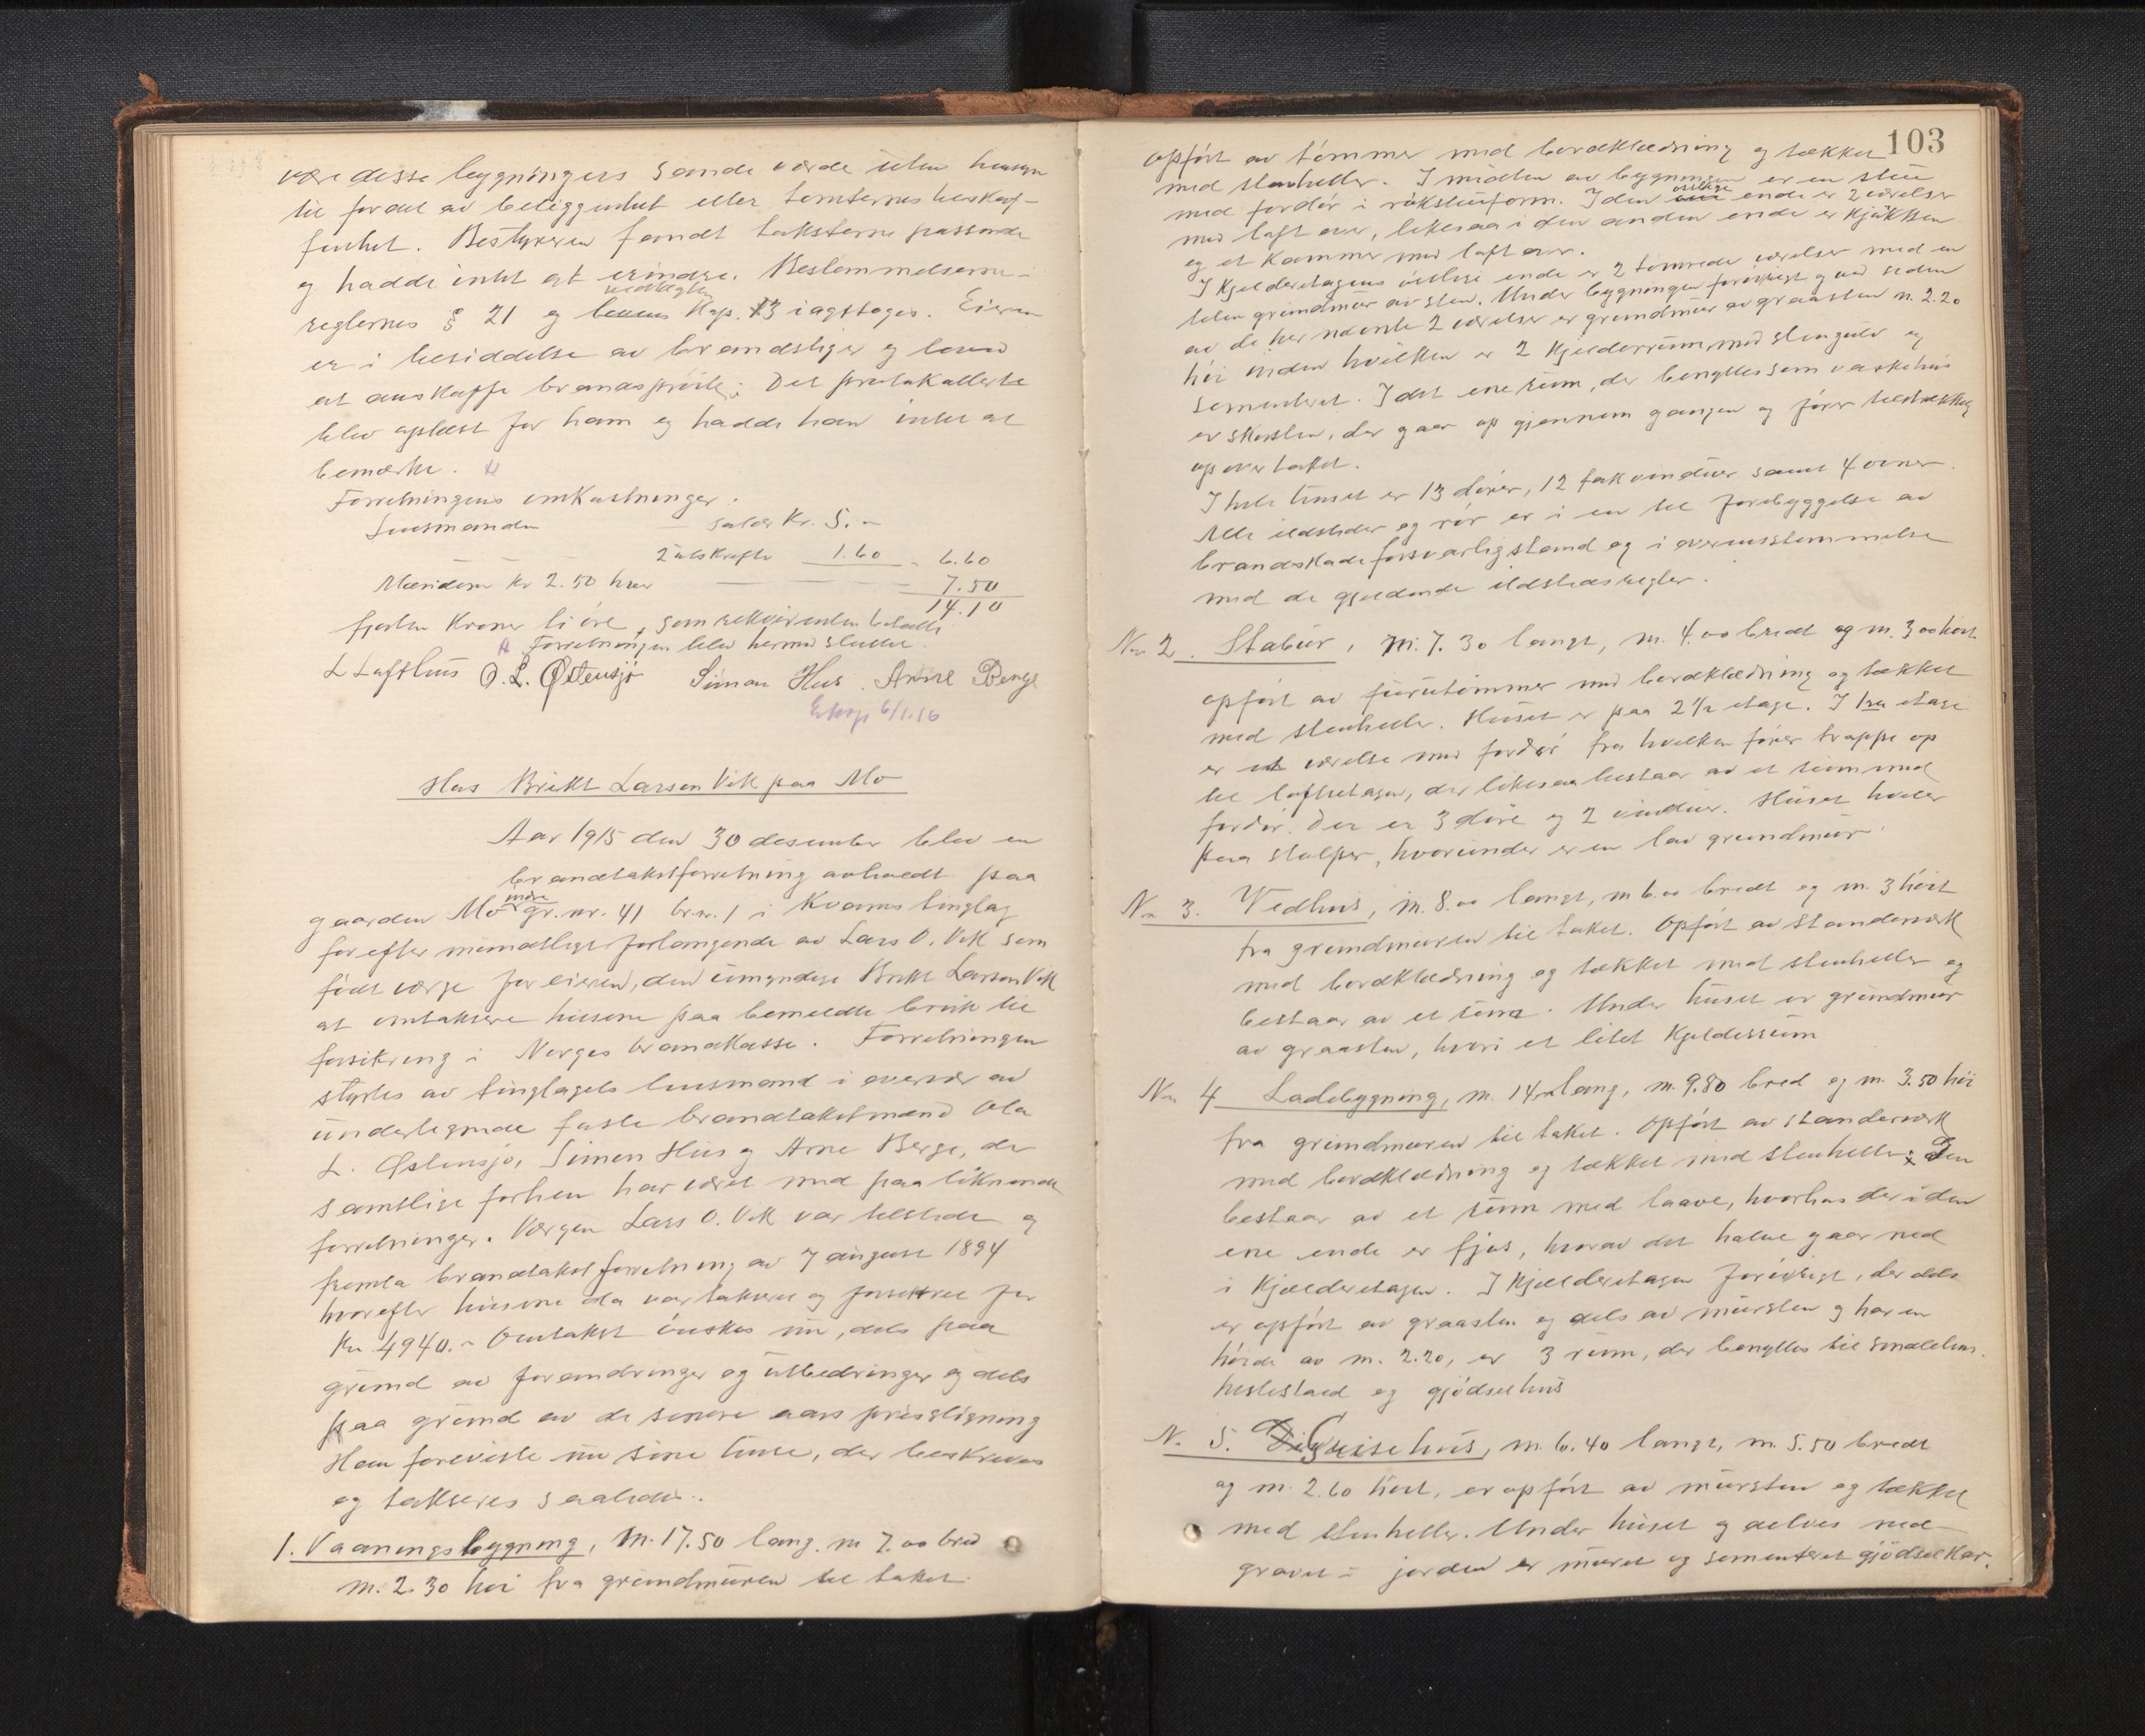 være disse bygningers sande værde uten hensyn
til fordel av beliggenhet eller tomternes beskaf-
fenhet. Bestyreren fandt taksterne passende
og hadde intet at erindre. Bestemmelserne
reglernes § 21 og vedtægten Kap. 13 iagttoges. Eieren
er i besiddelse av brandstiger og loved
at anskaffe brandsprøite. Det protokollerte
blev oplæst for ham og hadde han intet at
bemærke.
Forretningens omkostninger:
Lensmanden salær kr. 5.-
2 utskrifte 1.60 - 6.60
Mændene kr 2.50 hver 7.50
14.10
fjorten kroner ti øre, som rekvirenten betalte
Forretningen blev hermed sluttet.
L Lofthus O. L. Østensjø Simon Hus. Arne Berge
6/1.16
Hus Brikt Larsen Vik paa Mo
Aar 1915 den 30 desember blev en
brandtakstforretning avholdt paa
gaarden Mo indre gr. nr. 41 br.nr. 1 i Kvams tinglag
for efter mundtlig forlangende av Lars O. Vik som
født værge for eieren, den umyndige Brikt Larsen Vik
at omtaksere husene paa bemeldte bruk til
forsikring i Norges brandkasse. Forretningen
styrtes av tinglagets lensmand i overvær av
undertegnede faste brandtakstmænd Ola
L. Østensjø, Simon Hus og Arne Berge, der
samtlige forhen har været med paa liknende
forretninger. Værgen Lars O. Vik var tilstede og
fremla brandtakstforretning av 7 august 1894
hvorefter husene da var takseret og forsikret for
Kr 4940.- Omtakst ønskes nu, dels paa
grund av forandringer og utbedringer og dels
paa grund av de senere aars prisstigning
Han foreviste nu sine huse, der beskrives
og takseres saaledes:
1. Vaaningsbygning, m. 17.50 lang. m 7.00 bred
m. 2.30 høi fra grundmuren til taket.
103
opført av tømmer med bordklædning og tækket
med stenheller. I midten av bygningen er en stue
med fordør i røkstueform. I den østlige ende er 2 værelser
med loft over, likesaa i den anden ende er kjøkken
og et kammer med loft over.
I kjelderetagens østlige ende er 2 tømrede værelser med en
liten grundmur av sten. Under bygningen forøvrigt og ved siden
av de her nævnte 2 værelser er grundmur av graasten m. 2.20
høi inden hvilken er 2 kjelderrum med stengulv og
sementeret. I det ene rum, der benyttes som vaskehus
er skorsten, der gaar op gjennem gangen og fører tilstrækkelig
op over taket.
I hele huset er 13 dører, 12 fak vinduer samt 4 ovner.
Alle ildsteder og rør er i en til forebyggelse av
brandskade forsvarlig stand og i overensstemmelse
med de gjældende ildstedsregler.
No 2. Stabur, m. 7.30 langt, m. 4.00 bredt og m. 3.00 høit
opført av furutømmer med bordklædning og tækket
med stenheller. Huset er paa 2 1/2 etage. I 1ste etage
er et værelse med fordør fra hvilken fører trappe op
til loftsetagen, der likesaa bestaar av et rum med
fordør. Der er 3 døre og 2 vinduer. Huset hviler
paa stolper, hvorunder er en lav grundmur.
No 3. Vedhus, m. 8.00 langt, m 6.00 bredt og m. 3 høit
fra grundmuren til taket. Opført av standerverk
med bordklædning og tækket med stenheller og
bestaar av et rum. Under huset er grundmur
av graasten, hvori et litet kjelderrum
No 4 Ladebygning, m. 14.00 lang, m. 9.80 bred og m. 3.50 høi
fra grundmuren til taket. Opført av standerverk
med bordklædning og tækket med stenheller. Den
bestaar av et rum med laave, hvorhos der i den
ene ende er fjøs, hvorav det halve gaar ned
i kjælderetagen. I kjælderetagen forøvrigt, der dels
er opført av graasten og dels av mursten og har en
høide av m. 2.20, er 3 rum, der benyttes til smalehus.
hestestald og gjødselhus
No 5. Grisehus, m. 6.40 langt, m. 5.50 bredt
og m. 2.60 høit, er opført av mursten og tækket
med stenheller. Under huset og delvis ned-
gravet i jorden er muret og sementeret gjødselkar.